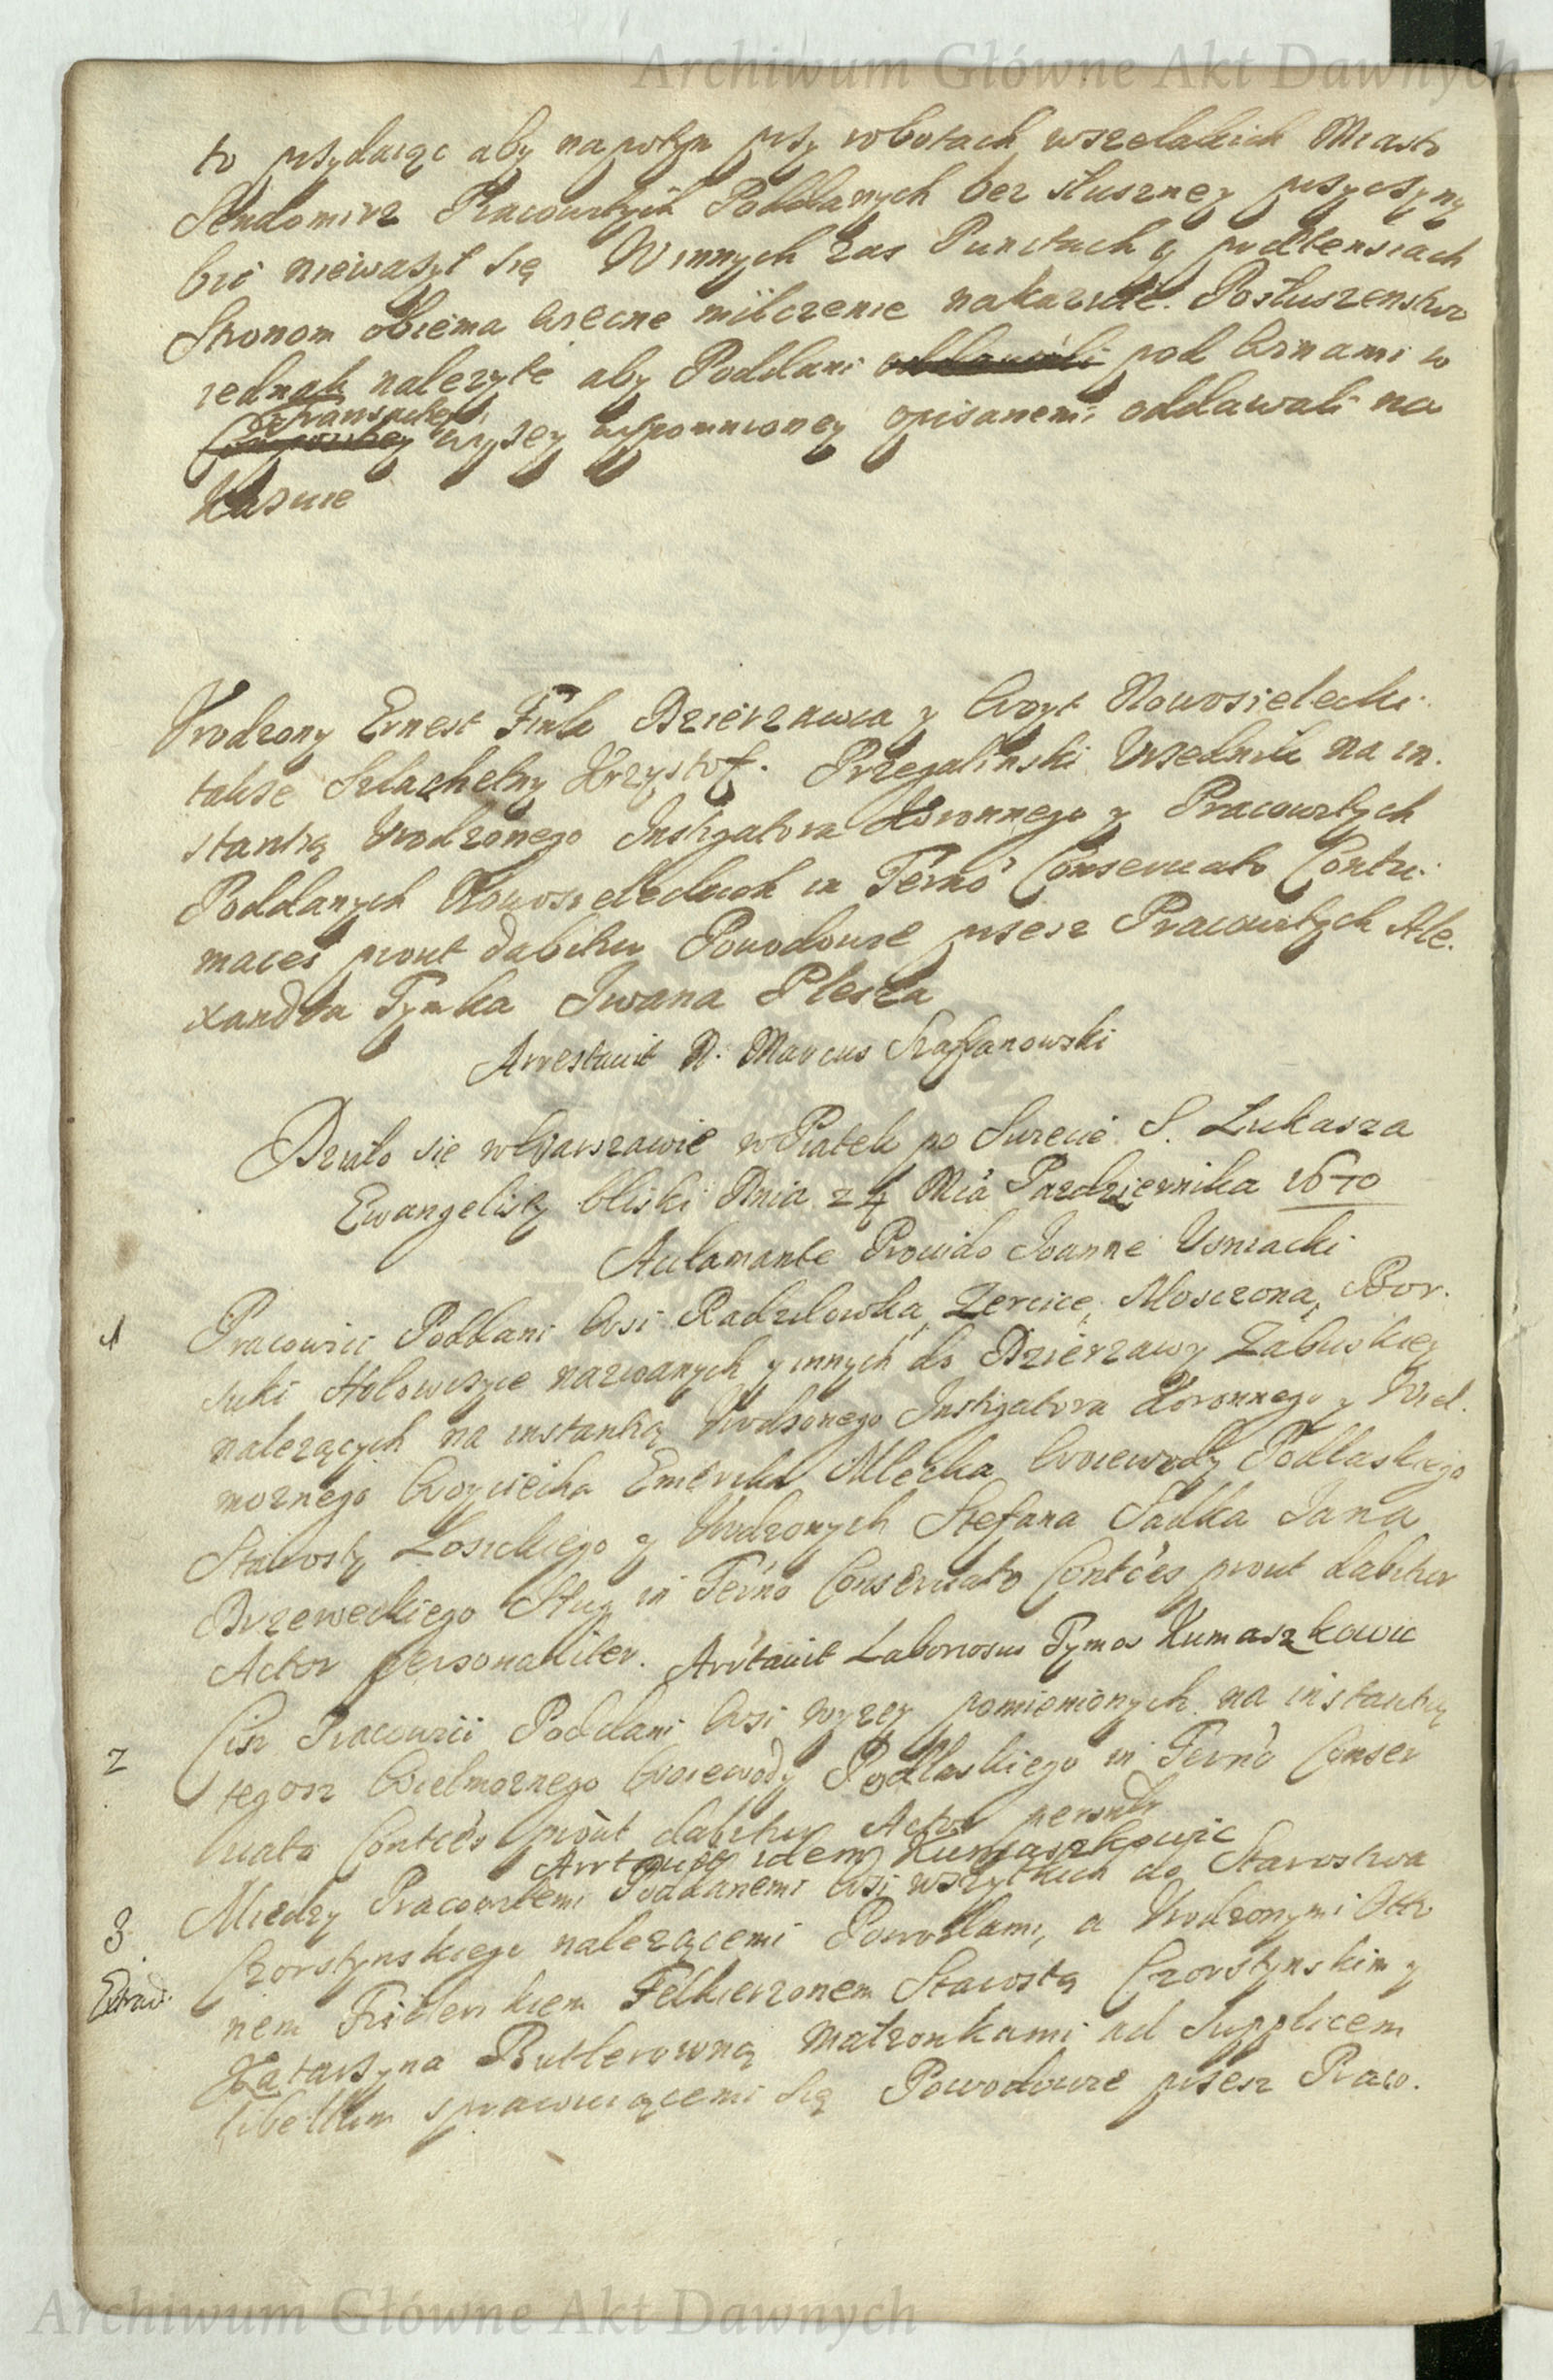 Archiwum Główne Akt Dawnych
to przydaiąc aby napotym przy robotach wszelakich Miasto
Sendomirz Pracowitych Poddanych bez słuszney przyczyny
bić nieważył się Winnych zas Punctach y praetensiach
Stronom obiema wieczne milczenie nakazuie. Posłuszenstwo
iednak nalezyte aby Poddani pod winami w
Transactiey wyszey wspomnioney opisanemi oddawali na
kazuie
Vrodzony Ernest Fink Dzierzawca y Woyt Nowosielecki
takze Szlachetny Krzysztof Przegalinski Vrzednik na in
stantią Vrodzonego Instigatora Koronnego y Pracowitych
Poddanych Nowosieleckich in Termo Conseruato Contu
maces prout dabitur Powodowie przesz Pracowitych Ale
xandra Tymka Iwana Plesza
Arrestauit N. Marcus Szaffanowski
Działo się w Warszawie w Piątek po Swięcie S. Łukasza
Ewangelisty bliski Dnia 24 Mca Pazdziernika 1670
Acclamante Prouido Joanne Vsniacki
1 Pracowici Poddani Wsi Radziłowka, Zercice, Mosczona, Bor
suki Hołowczyce nazwanych y innych do Dzierzawy Zabuskiey
nalezących na instantią Vrodzonego Instigatora Koronnego y Wiel
moznego Woyciecha Emerika Mlecka Woiewody Podlaskiego
Starosty Łosickiego y Vrodzonych Stefana Sadka Jana
Brzeweckiego Sług in Termo Conseruato Contces prout dabitur
Actor personaliter. Arrtauit Laboriosus Tymos Kumaszkowic
2 Ciz Pracowici Poddani Wsi wyzey pomienionych na instantią
tegosz Wielmoznego Woiewody Podlaskiego in Termo Conser
uato Contces prout dabitur Actor personlr
Arrtauit idem Kumaszkowic
3 Miedzy Pracowitemi Poddanemi Wsi wszytkich do Starostwa
Extrad. Czorstynskiego nalezącemi Powodami, a Vrodzonymi Otto
nem Friderikiem Felkierzonem Starostą Czorstynskim y
Katarzyna Butlerowną Małzonkami ad Supplicem
libellum sprawuiącemi się Powodowie przesz Praco.
Archiwum Główne Akt Dawnych